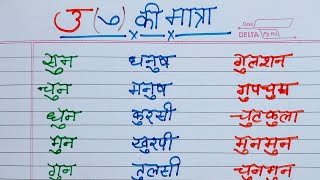 उ (ु) की मात्रा
DELTA Pg No.
सुन धनुष गुलशन
चुन मनुष गुपचुप
धुन कुरसी चुटकुला
मुन खुरपी मुनमुन
गुन तुलसी चुनमुन